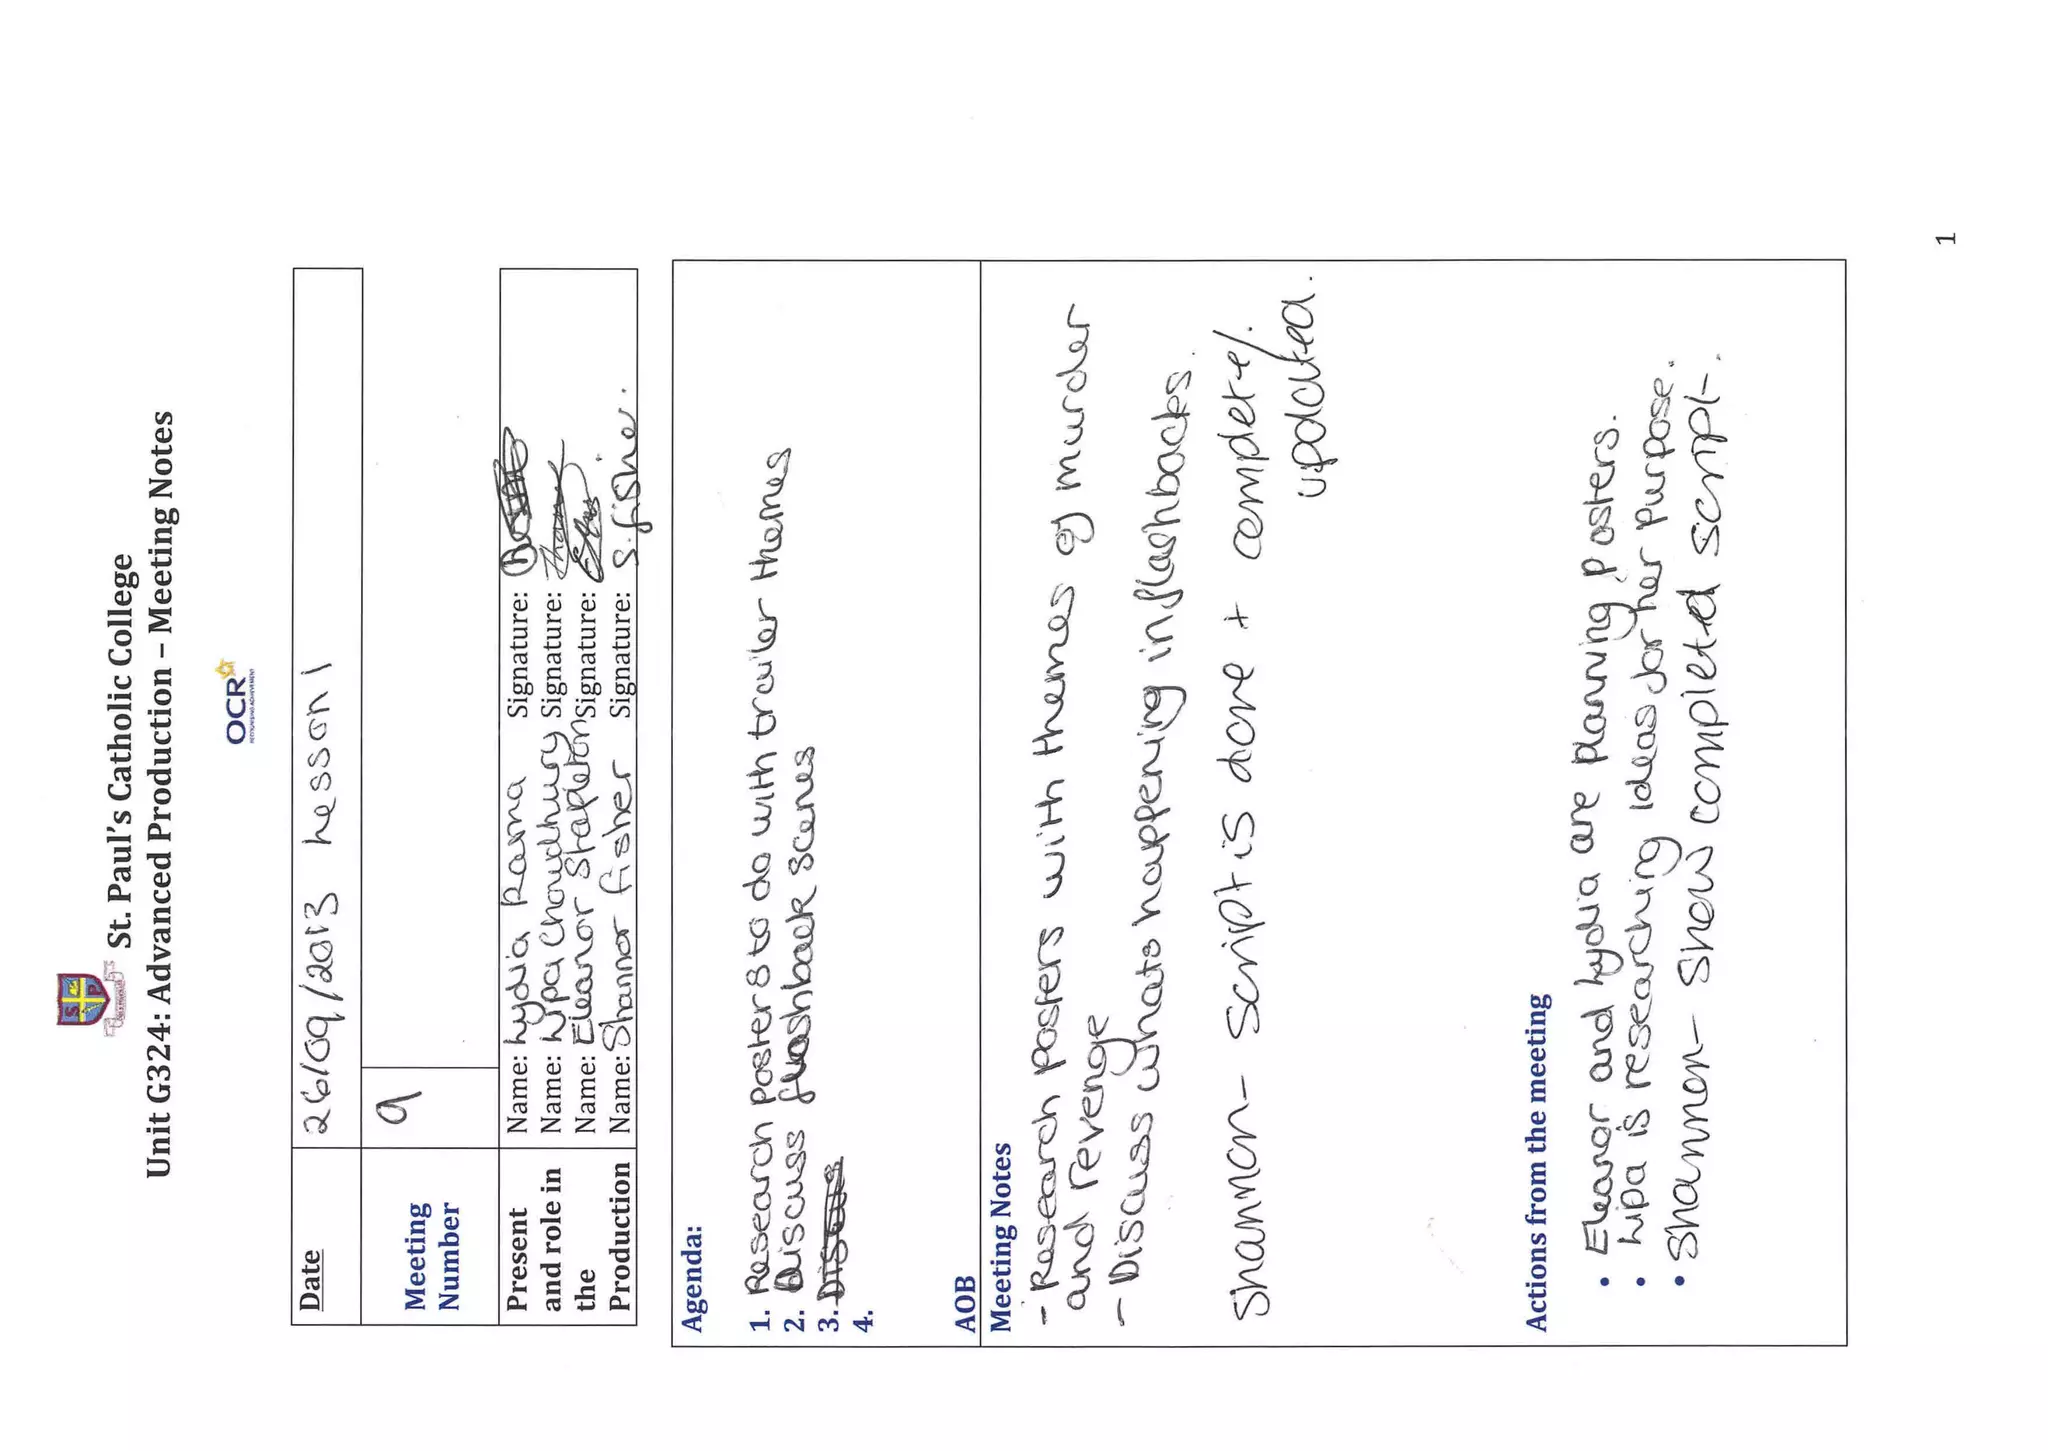 St. Paul's Catholic College
Unit G324: Advanced Production – Meeting Notes
OCR
RECOGNISING ACHIEVEMENT
Date 26/09/2013 Lesson 1
Meeting Number 9
Present and role in the Production
Name: Lydia Rama Signature:
Name: Lipa Choudhury Signature:
Name: Eleanor Stapleton Signature:
Name: Shannon fisher Signature: S. fisher.
Agenda:
1. Research posters to do with trailer themes
2. Discuss flashback scenes
3.
4.
AOB
Meeting Notes
- Research posters with themes of murder
and revenge
- Discuss whats happening in flashbacks.
Shannon - Script is done + complete/.
updated.
Actions from the meeting
• Eleanor and Lydia are planning posters.
• Lipa is researching ideas for her purpose.
• Shannon - Show completed script.
1